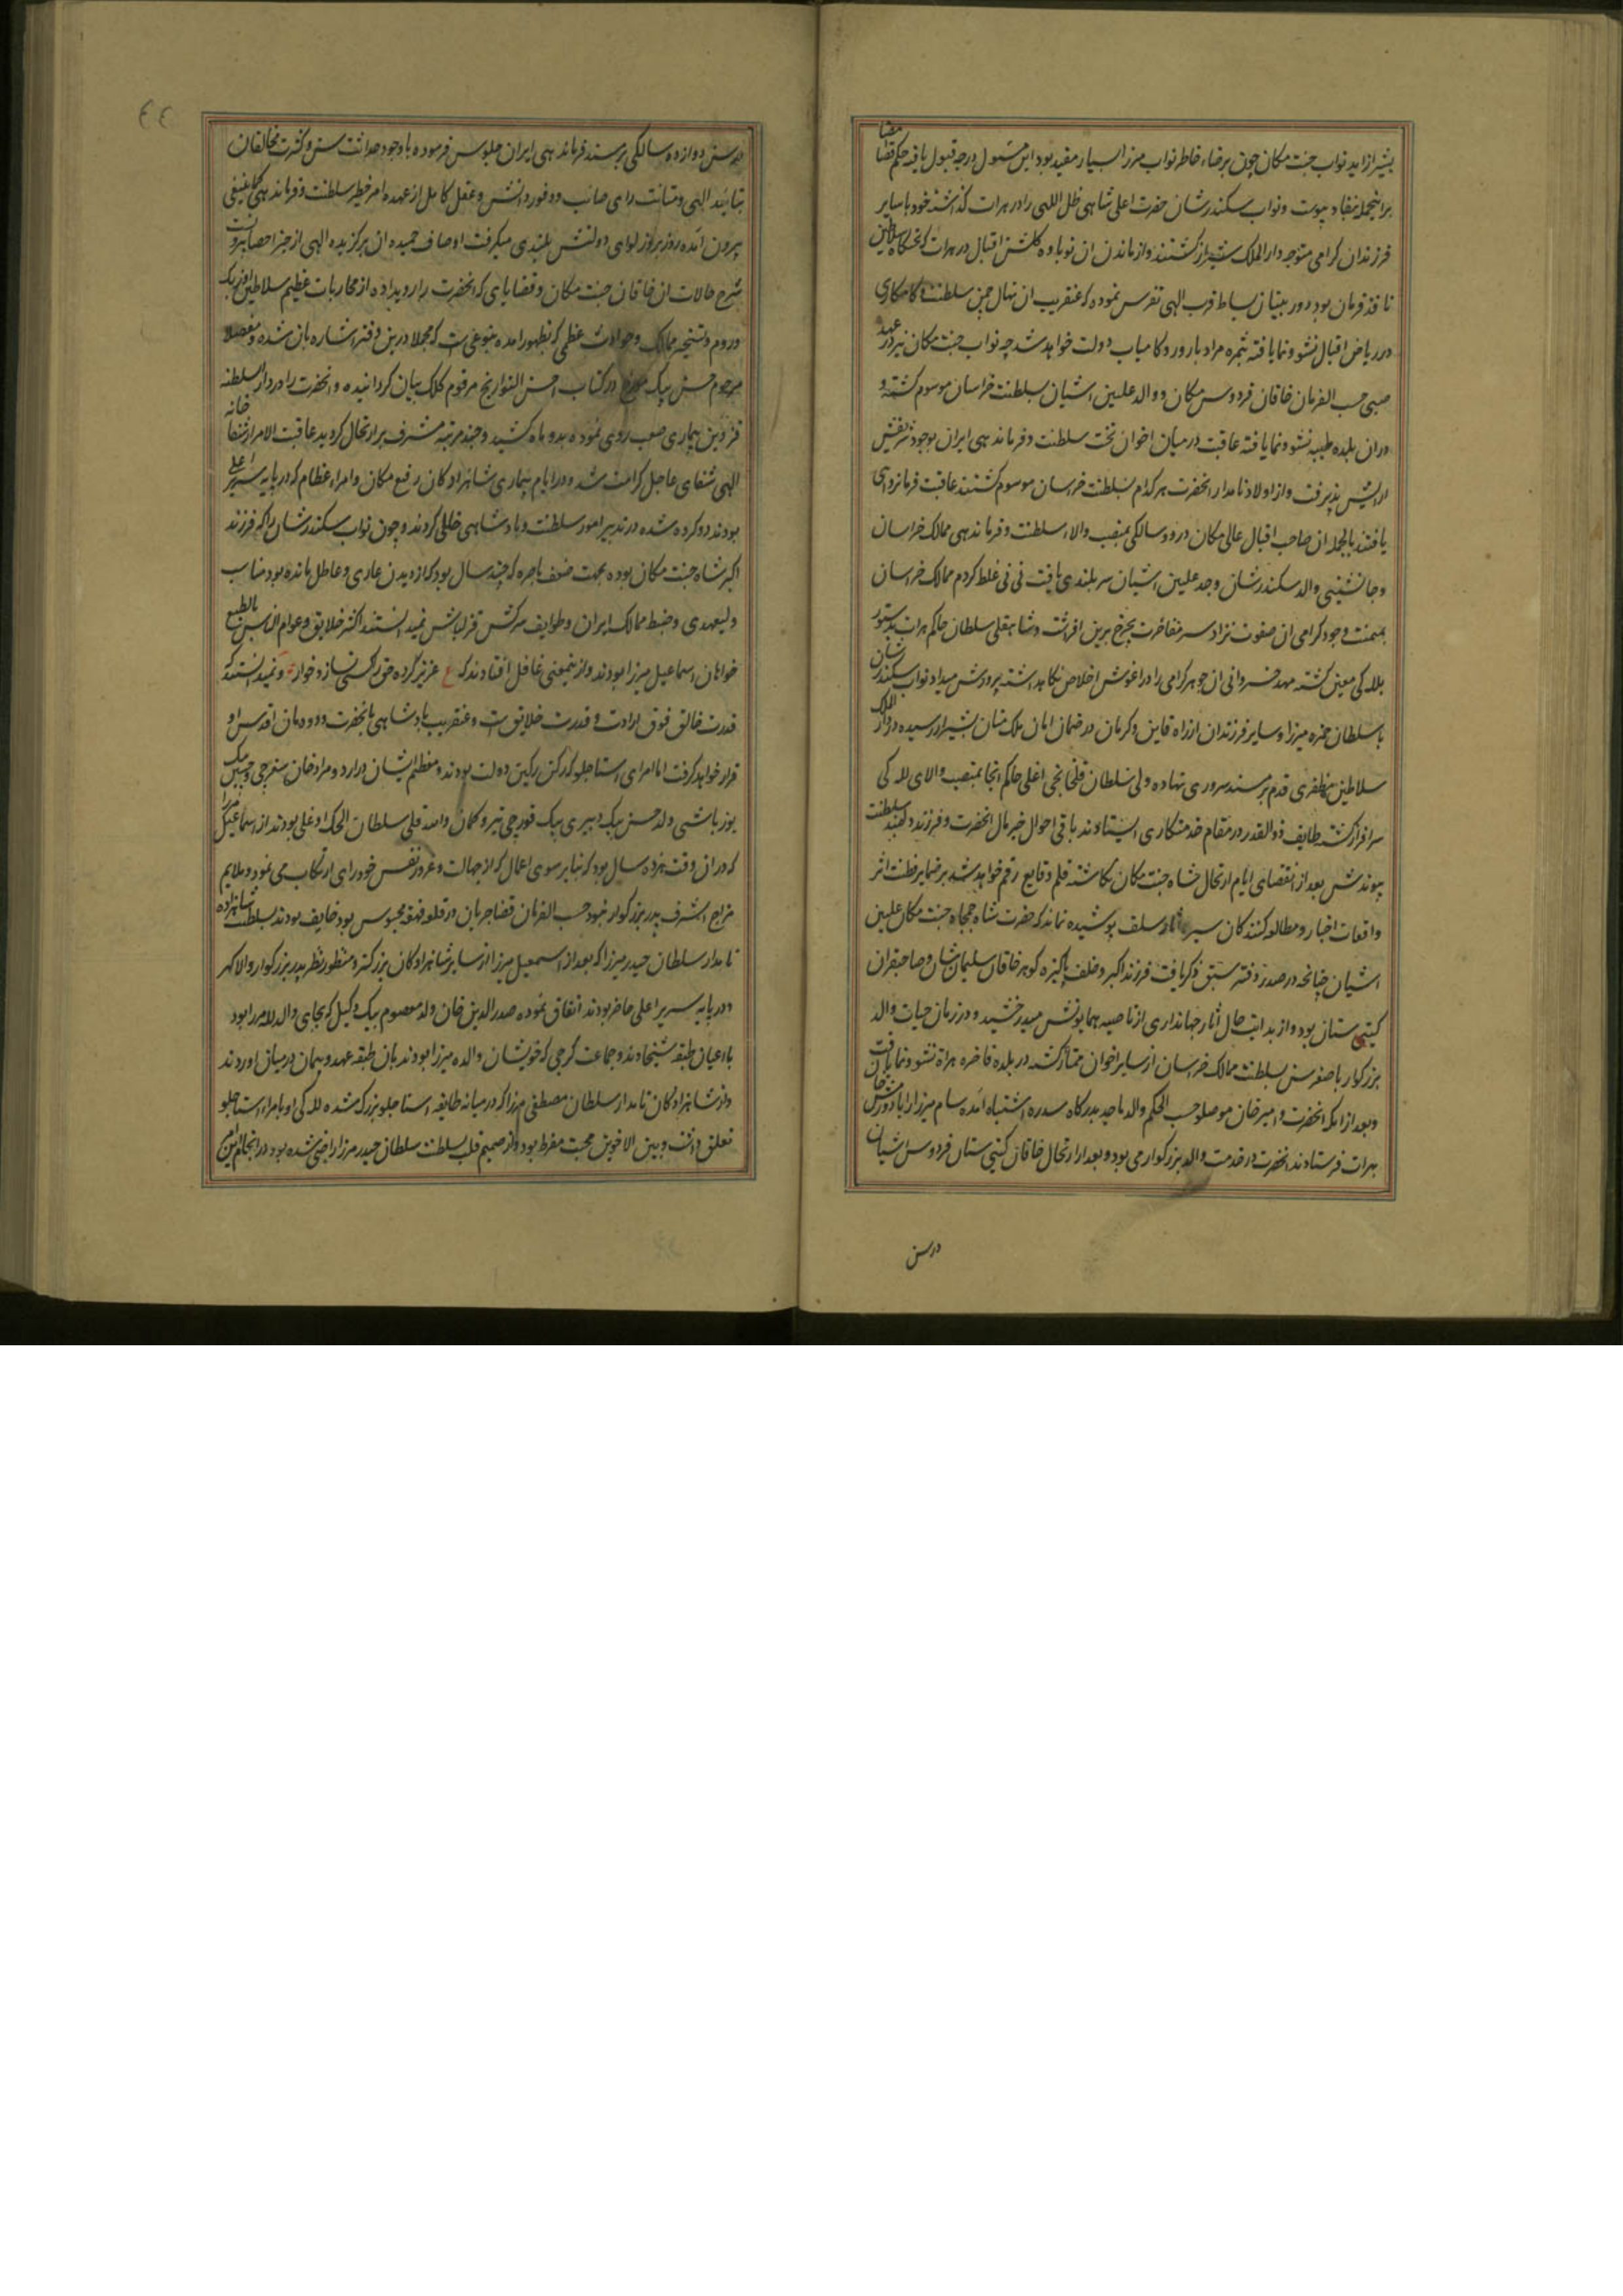 بشیراز آید نواب جنت مکان چون برضاء خاطر نواب میرزا بسیار مقید بود این مسئول درجه قبول یافته حکم قضا مضا
برانجمله بنفاذ پیوست و نواب سکندرشان حضرت اعلی شاهی ظل اللهی را در هرات گذاشته خود با سایر
فرزندان کرامی متوجه دار الملک شیراز کشتند و از ماندن ان نوباوه کلشن اقبال در هرات که تختکاه سلاطین
نافذ فرمان بود دور بینان بساط قرب الهی تفرس نموده که عنقریب ان نهال چمن سلطنت و کامکاری
در ریاض اقبال نشو و نما یافته بثمره مراد بارور و کامیاب دولت خواهد شد چه نواب جنت مکان نیز در عهد
صبی حسب الفرمان خاقان فردوس مکان و والد علیین اشیان بسلطنت خراسان موسوم کشته و
دران بلده طیبه نشو و نما یافته عاقبت درمیان اخوان تخت سلطنت و فرماندهی ایران بوجود شریفش
ارایش پذیرفت و از اولاد نامدار انحضرت هر کدام بسلطنت خراسان موسوم کشتند عاقبت فرمانروای
یافتند بالجمله ان صاحب اقبال عالی مکان در دو سالکی بمنصب والاء سلطنت و فرماندهی ممالک خراسان
و جانشینی والد سکندرشان و جد علیین اشیان سربلندی یافت نی نی غلط کردم ممالک خراسان
بمیمنت وجود کرامی ان صفوت نژاد سر مفاخرت بچرخ برین افراشت و شاهقلی سلطان حاکم هرات بدستور
بللہ کی معین کشته مهد خسروانی ان جوهر کرامی را در اغوش اخلاص نکاهداشته پرورش میداد نواب سکندرشان
با سلطان حمزه میرزا و سایر فرزندان از راه قاین و کرمان در ضمان امان ملک منان بشیراز رسیده در دار الملک
سلاطین مظفری قدم بر مسند سروری نهاده ولی سلطان قلخانچی اغلی حاکم انجا بمنصب والای للہ کی
سرافراز کشته طایفه ذوالقدر در مقام خدمتکاری ایستادند باقی احوال خیر مال انحضرت و فرزند سلطنت
پیوندش بعد از انقضای ایام ارتحال شاه جنت مکان نکاشته قلم وقایع رقم خواهد شد بر ضمایر فطنت اثر
واقفات اخبار و مطالعه کنندکان سیر و اثار سلف پوشیده نماند که حضرت شاه جمجاه جنت مکان علیین
اشیان چنانچه در صدر دفتر سبق ذکر یافت فرزند اکبر و خلف پاکیزه کوهر خاقان سلیمان شان و صاحبقران
کیتی ستان بود و از بدایت حال اثار جهانداری از ناصیه همایونش میدرخشید و در زمان حیات والد
بزرکوار با صغر سن بسلطنت ممالک خراسان از سایر اخوان ممتاز کشته در بلده فاخره هراة نشو و نما یافت
و بعد از انکه انحضرت و امیر خان موصلو حسب الحکم والد ماجد بدرکاه سدره اشتباه امده سام میرزا را با دورمش خان
بهرات فرستادند انحضرت در خدمت والد بزرکوار می بود و بعد از ارتحال خاقان کیتی ستان فردوس اشیان
در سن
٤٤
در سن دوازده سالکی بر مسند فرماندهی ایران جلوس فرموده با وجود حداثت سن و کثرت مخالفان
بتائید الهی و متانت رای صائب و وفور دانش و عقل کامل از عهده امر خطیر سلطنت و فرماندهی کماینبغی
بیرون امده روز بروز لوای دولتش بلندی میکرفت اوصاف حمیده ان برکزیده الهی از حیز احصا بیرونست
شرح حالات ان خاقان جنت مکان و قضایای که انحضرت را رویداده از محاربات عظیم سلاطین اوزبک
و روم و تسخیر ممالک و حوادث عظمی که بظهور امده بنوعی است که مجملا درین دفتر اشاره بان شده و مفصلا
مرحوم حسن بیک مورخ در کتاب احسن التواریخ مرقوم کلک بیان کردانیده و انحضرت را در دار السلطنه
قزوین بیماری صعب روی نموده بدو ماه کشید و چند مرتبه مشرف بر ارتحال کردید عاقبت الامر از شفا خانه
الهی شفای عاجل کرامت شد و در ایام بیماری شاهزادکان رفیع مکان و امراء عظام که در پایه سریر اعلی
بودند دو کروه شده در تدبیر امور سلطنت و پادشاهی خللی کردند و چون نواب سکندرشان را که فرزند
اکبر شاه جنت مکان بوده بجهت ضعف باصره که چند سال بود که از دیدن عاری و عاطل مانده بود مناسب
ولیعهدی و ضبط ممالک ایران و طوایف سرکش قزلباش نمیدانستند اکثر خلایق و عوام الناس بالطبع
خواهان اسماعیل میرزا بودند و از ینمعنی غافل افتادند که ع عزیز کرده حق را کسی نسازد خوار و نمیدانستند که
قدرت خالق فوق ارادت و قدرت خلایق است و عنقریب پادشاهی بانحضرت و دودمان اقدس او
قرار خواهد کرفت اما امرای استاجلو که رکن رکین دولت بودند و معظم ایشان دارد و مراد خان سفرچی و حسین بیک
یوزباشی ولد حسن بیک و پیری بیک قورچی تیر و کمان و امتد قلی سلطان الحک اوغلی بودند از اسماعیل میرزا
که دران وقت نزده سال بود که بنابر سوی اعمال که از جهالت و غرور نفس خودرای ارتکاب می نمود و ملایم
مزاج اشرف پدر بزرکوار نبود حسب الفرمان قضا جریان در قلعه قهقه محبوس بود خایف بودند بسلطنت شاهزاده
نامدار سلطان حیدر میرزا که بعد از اسمعیل میرزا از سایر شاهزادکان بزرکتر و منظور نظر پدر بزرکوار والا کهر
و در پایه سریر اعلی حاضر بود اتفاق نموده صدر الدین خان ولد معصوم بیک وکیل که بجای والد للہ میرزا بود
با اعیان طبقه شیخاوند و جماعت کرجی که خویشان والده میرزا بودند بان طبقه عهد و پیمان درمیان اوردند
و از شاهزادکان نامدار سلطان مصطفی میرزا که درمیانه طایفه استاجلو بزرک شده للہ کی او بامراء استاجلو
تعلق داشت و بین الاخوین محبت مفرط بود و از صمیم قلب بسلطنت سلطان حیدر میرزا راضی شده بود در انجام این